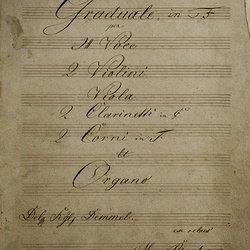 Graduale, in F
per
4 Voce
2 Violini
Viola
2 Clarinetti in C
2 Corni in F
et
Organo
Del: Demmel.
ex rebus